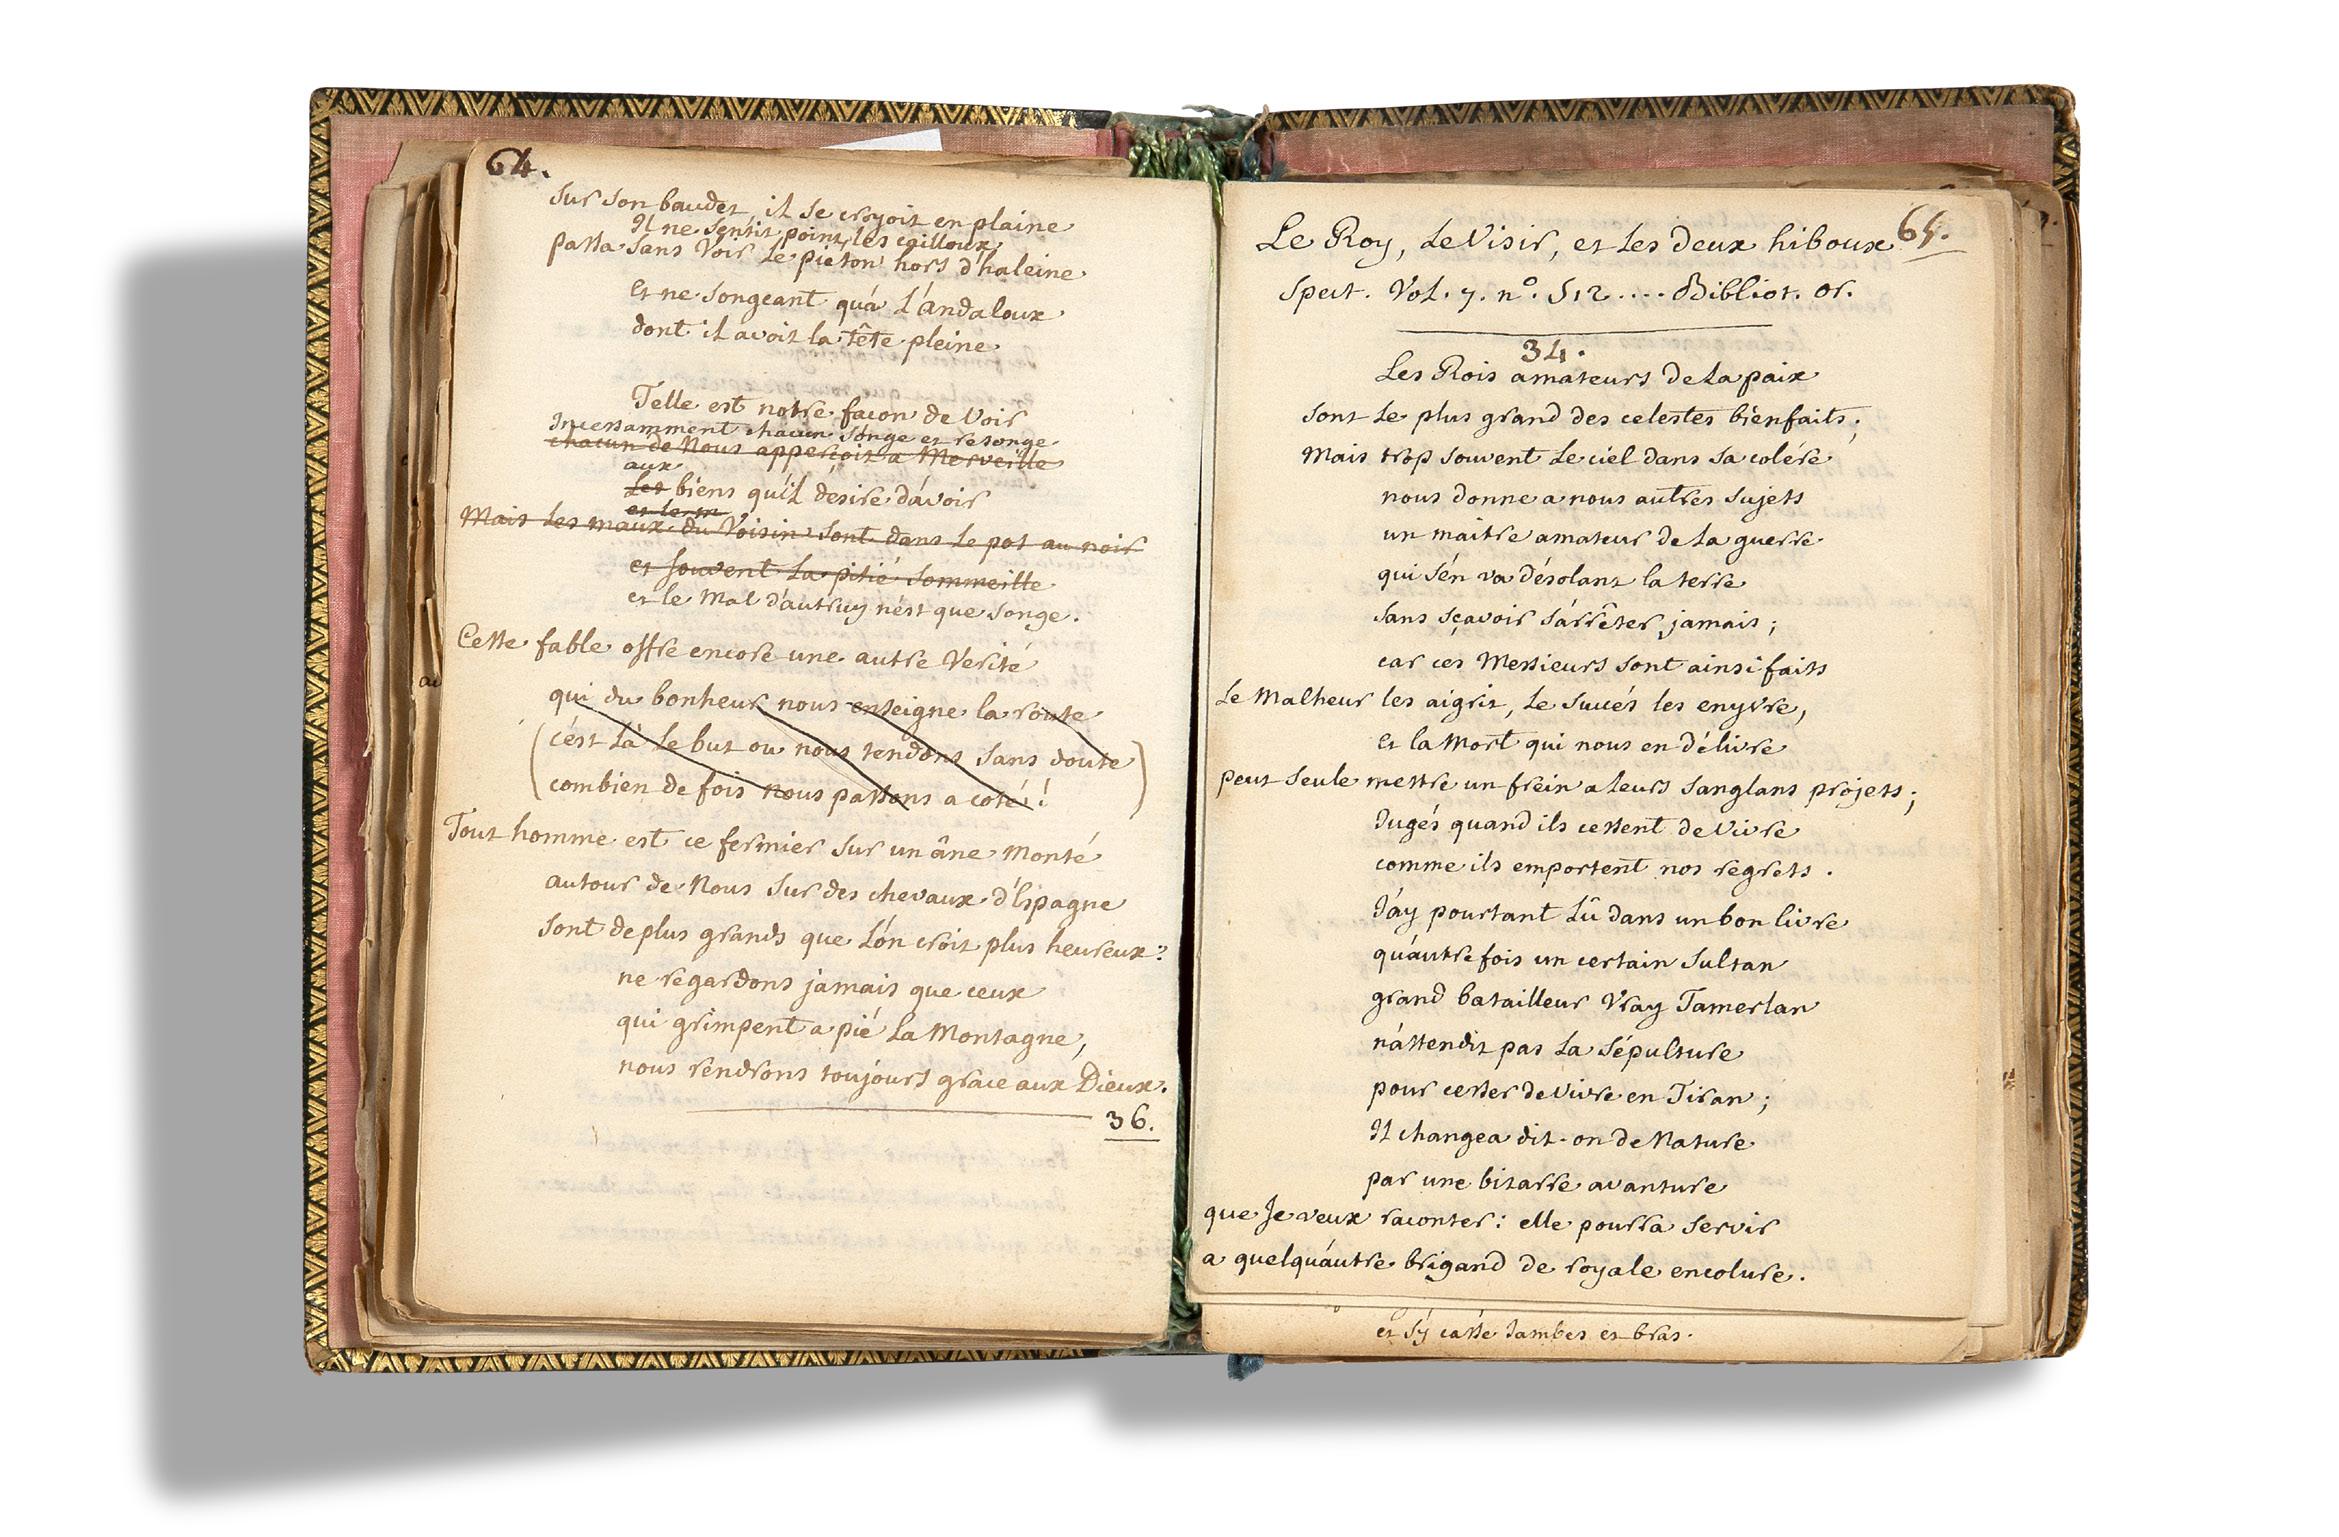 64.
Sur son baudet, il se croyoit en plaine
Il ne sentit point les cailloux,
passa sans Voir Le piéton hors d'haleine
et ne songeant qu'à L'andaloux
dont il avoit la tête pleine
Telle est notre façon de Voir
Incessamment chacun songe et resonge
chacun de Nous apperçoit a Merveille
aux
Les biens qu'il desire d'avoir
et le m
Mais Les maux du Voisin sont dans Le pot au noir
et souvent La pitié Sommeille
et le Mal d'autruy n'est que songe.
Cette fable offre encore une autre Verité
qui du bonheur nous enseigne la route
(c'est Là Le but ou nous tendons sans doute)
combien de fois nous passons a coté !
Tout homme est ce fermier sur un âne Monté
autour de Nous Sur des chevaux d'Espagne
Sont de plus grands que L'on croit plus heureux:
ne regardons jamais que ceux
qui grimpent a pié La Montagne,
nous rendrons toujours grace aux Dieux.
36.
65.
Le Roy, Le Visir, et Les deux hiboux
Spect. Vol. 7. n°. 512 .... Bibliot. or.
34.
Les Rois amateurs de La paix
sont Le plus grand des celestes bienfaits;
Mais trop souvent Le ciel dans sa colére
nous donne a nous autres Sujets
un maitre amateur de La guerre
qui s'én va désolant la terre
sans sçavoir s'árrêter jamais ;
car ces Messieurs sont ainsi faits
Le Malheur les aigrit, Le succés les enyvre,
et la Mort qui nous en délivre
peut Seule mettre un frein a leurs Sanglans projets ;
Jugés quand ils cessent de Vivre
comme ils emportent nos regrets .
J'ay pourtant Lû dans un bon livre
qu'autre fois un certain Sultan
grand batailleur Vray Tamerlan
n'attendit pas La Sépulture
pour cesser de Vivre en Tiran ;
Il changea dit-on de Nature
par une bizarre avanture
que Je veux raconter : elle pourra Servir
a quelqu'autre brigand de royale encolure.
et s'y casse Jambes et bras.